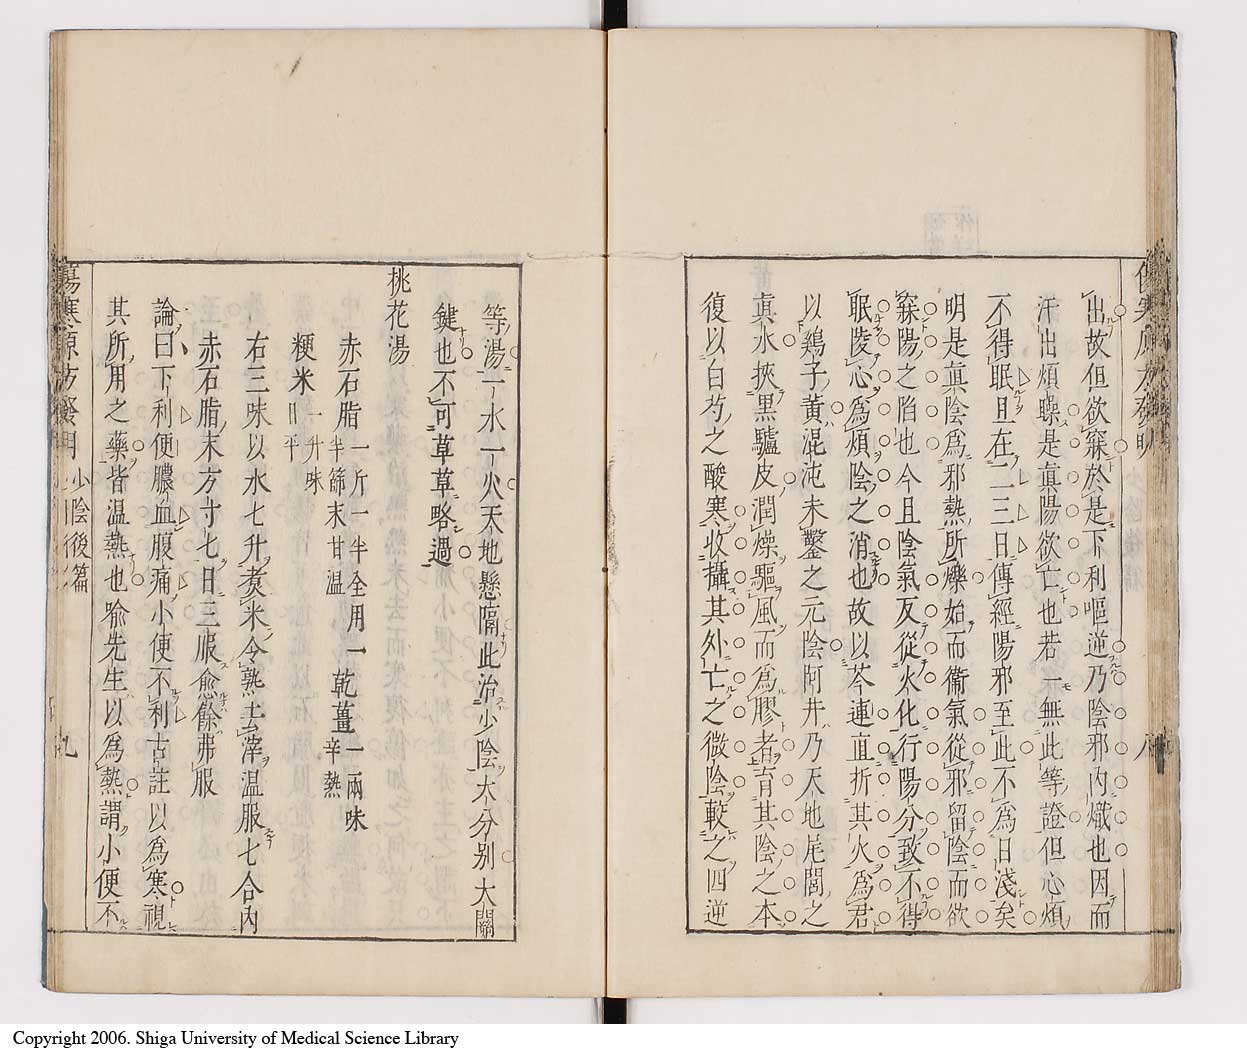 傷寒原方發明
八
出故但欲寐於是下利嘔逆乃陰邪內熾也因而
汗出煩躁是眞陽欲亡也若一無此等證但心煩
不得眠且在二三日傳經陽邪至此不爲日淺矣
明是眞陰爲邪熱所爍始而衞氣從邪留陰而欲
寐陽之陷也今且陰氣反從火化行陽分致不得
眠陵心爲煩陰之消也故以芩連直折其火爲君
以鷄子黃混沌未鑿之元陰阿井乃天地尾閭之
眞水挾黑驢皮潤燥驅風而爲膠者育其陰之本
復以白芍之酸寒收攝其外亡之微陰較之四逆
等湯一水一火天地懸隔此治少陰大分别大關
鍵也不可草草略過
桃花湯
赤石脂一斤一半全用一半篩末甘溫
乾薑一兩味辛熱
粳米一升味甘平
右三味以水七升煮米令熟去滓温服七合內
赤石脂末方寸匕日三服愈餘弗服
論曰下利便膿血腹痛小便不利古註以爲寒視
其所用之藥皆温熱也喻先生以爲熱謂小便不
傷寒原方發明
少陰後篇
九
Copyright 2006. Shiga University of Medical Science Library